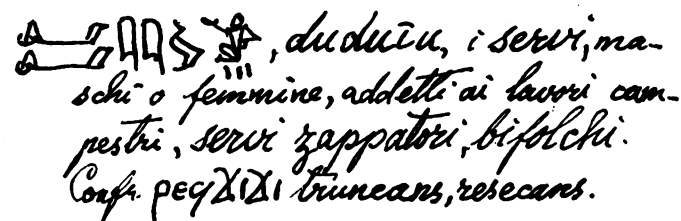 , duduīu, i servi, ma-
schi o femmine, addetti ai lavori cam-
pestri, servi zappatori, bifolchi.
Confr. ⲣⲉϥϫⲓϫⲓ truncans, resecans.